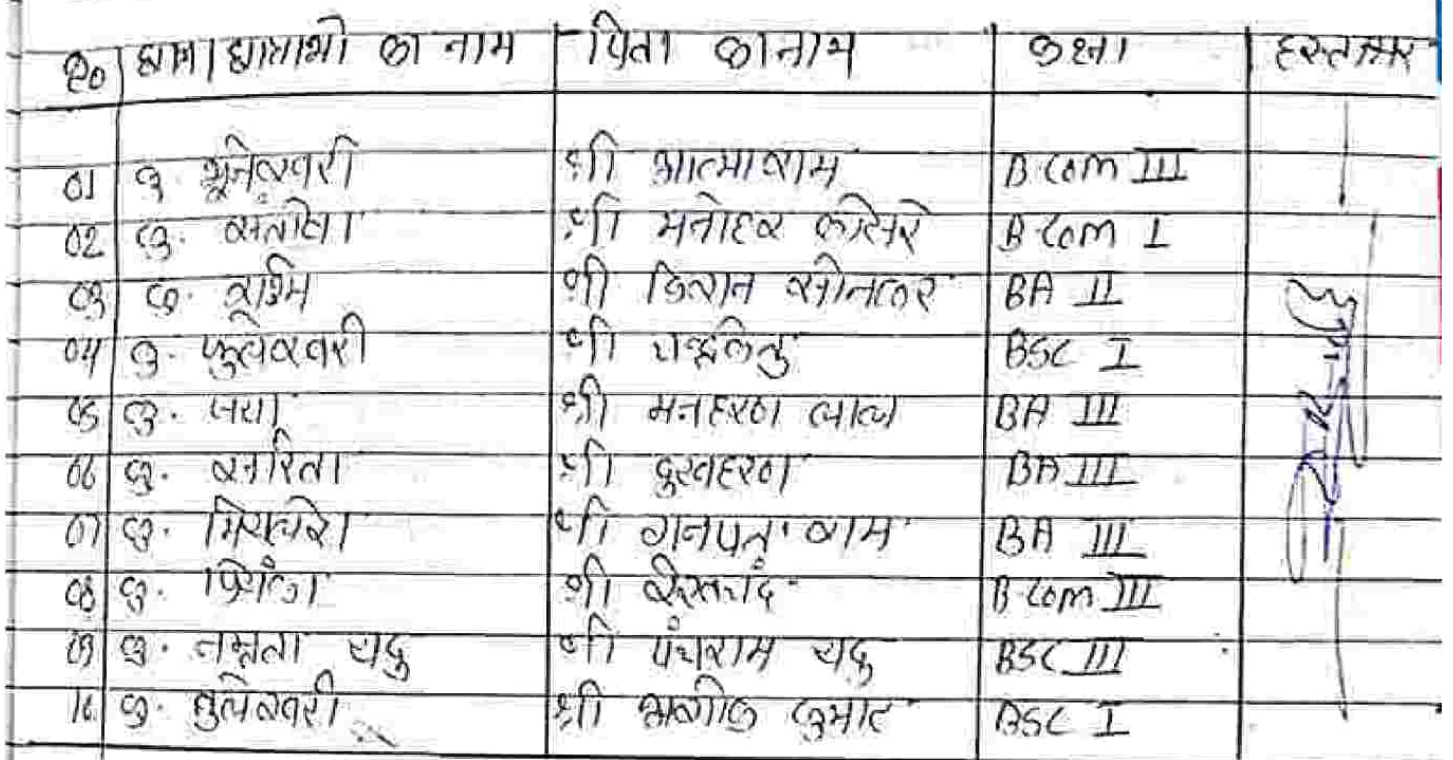 क्र0 छात्र/छात्राओ का नाम पिता का नाम कक्षा हस्ताक्षर
01 कु भूनेश्वरी श्री आत्माराम B Com III
02 कु. संतोषी श्री मनोहर कोसरे B Com I
03 कु. रश्मि श्री किशन सोनकर BA II
04 कु. फुलेश्वरी श्री BSC I
05 कु. जया श्री मनहरण लाल BA III
06 कु. सरिता श्री दुखहरण BA III
07 कु. श्री गनपत राम BA III
08 कु. प्रियंका श्री B Com III
09 कु. नम्रता यदु श्री पंचराम यदु BSC III
10 कु. तुलेश्वरी श्री कुमार BSC I